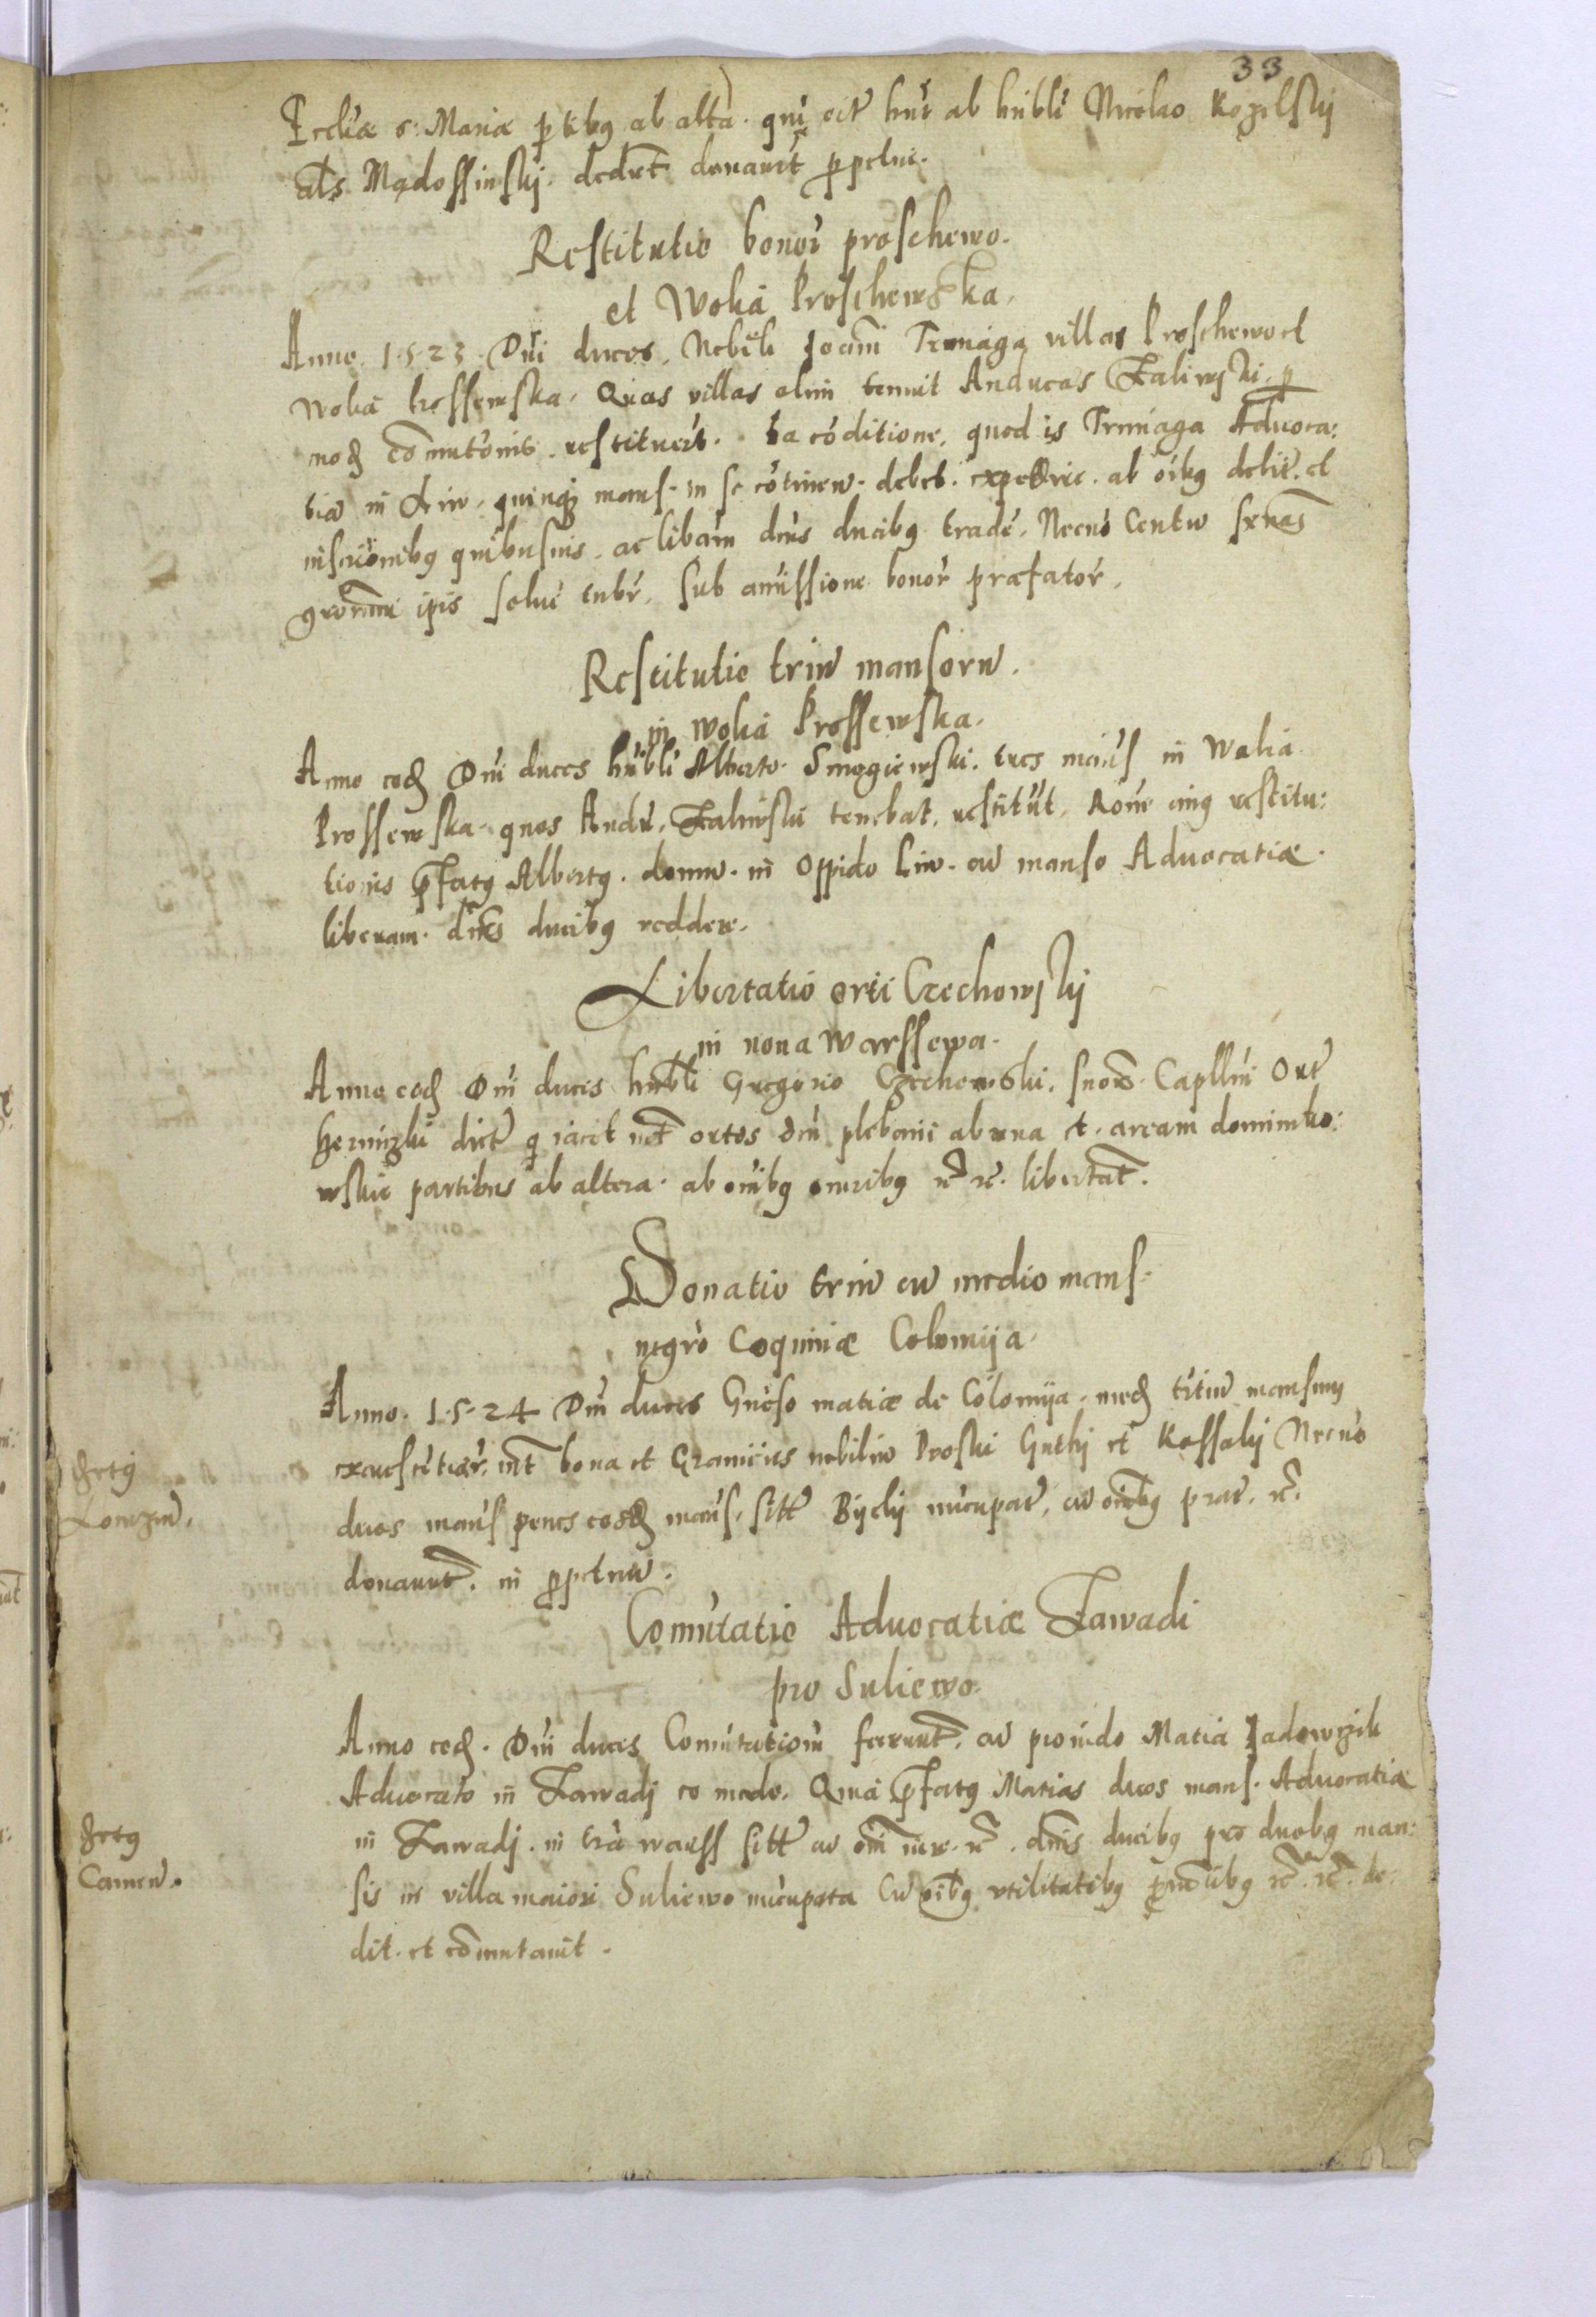 33
Eccliæ S: Mariæ ptibg ab alta. ab hnbli Nicolao Kozelskij
als Madossinskij. dedert donaurt ppetue.
Restitutio bonor proschewo.
et Wolia Proschewska.
Anno. 1.5.23. Dni duces. Nobili Joani Trnaga villas Proschewo et
Wolia Prossewska. Quas villas olim tenuit Andreas Zaliwski p
mod comutonis restituert. ea coditione, quod is Trnaga Aduoca:
tia in Liw. quinq mans. in se cotinen. debet. expedire. ab oibg debit. et
inscrionibg quibusuis. ac libam dnis ducibg trade. Necno Centu sexnas
ipis solue tnbr. sub amissione bonor præfator.
Restitutio triu mansoru.
in Wolia Prossewska.
Anno eod Dni duces hnbli Alberto Smogiewski. tres mans in Wolia
Prossewska. quos Andr. Zaliwski tenebat. restitut. Rone cuig restitu:
tionis pfatg Albertg. domu. in Oppido Liw. cu manso Aduocatiæ.
liberam. dnis ducibg reddere.
Libertatio orti Czechowskij
in noua Warssewa.
Anno eod Dni duces hnbli Gregorio Czechowski. Capllni Ort
dict q iacet int ortos dni plebani ab una et. aream dominiko:
wskie partibus ab altera. ab onibg oneribg rc rc. libertat.
Donatio triu cu medio mans.
negro Coquinæ Colomija.
Anno. 1.5.24 Dni duces Gnoso matiæ de Colomija. med tritiu mansmg
int bona et Granicies nobiliu Proski Guthij et Kossaly Necno
duos mans penes eosd mans. sitt Bijelij nucupat. cu oibg prat. rc.
donauert. in ppetuu.
Comutatio Aduocatiæ Zawadi
pro Suliewo.
Anno eod. Dni duces Comutationi fecerunt. cu prouido Matia Jadowzik
Aduocato in Zawadj eo modo. Quia pfatg Matias duos mans. Aduocatiæ
in Zawadj. in tra warss sitt cu oni iure. rc. dnis ducibg pro duobg man:
sis in villa maiori Suliewo nucupata Cu oibg vtilitatibg rc. rc. de:
dit. et comutauit.
Zetg
Lomzin.
Zetg
Camen.